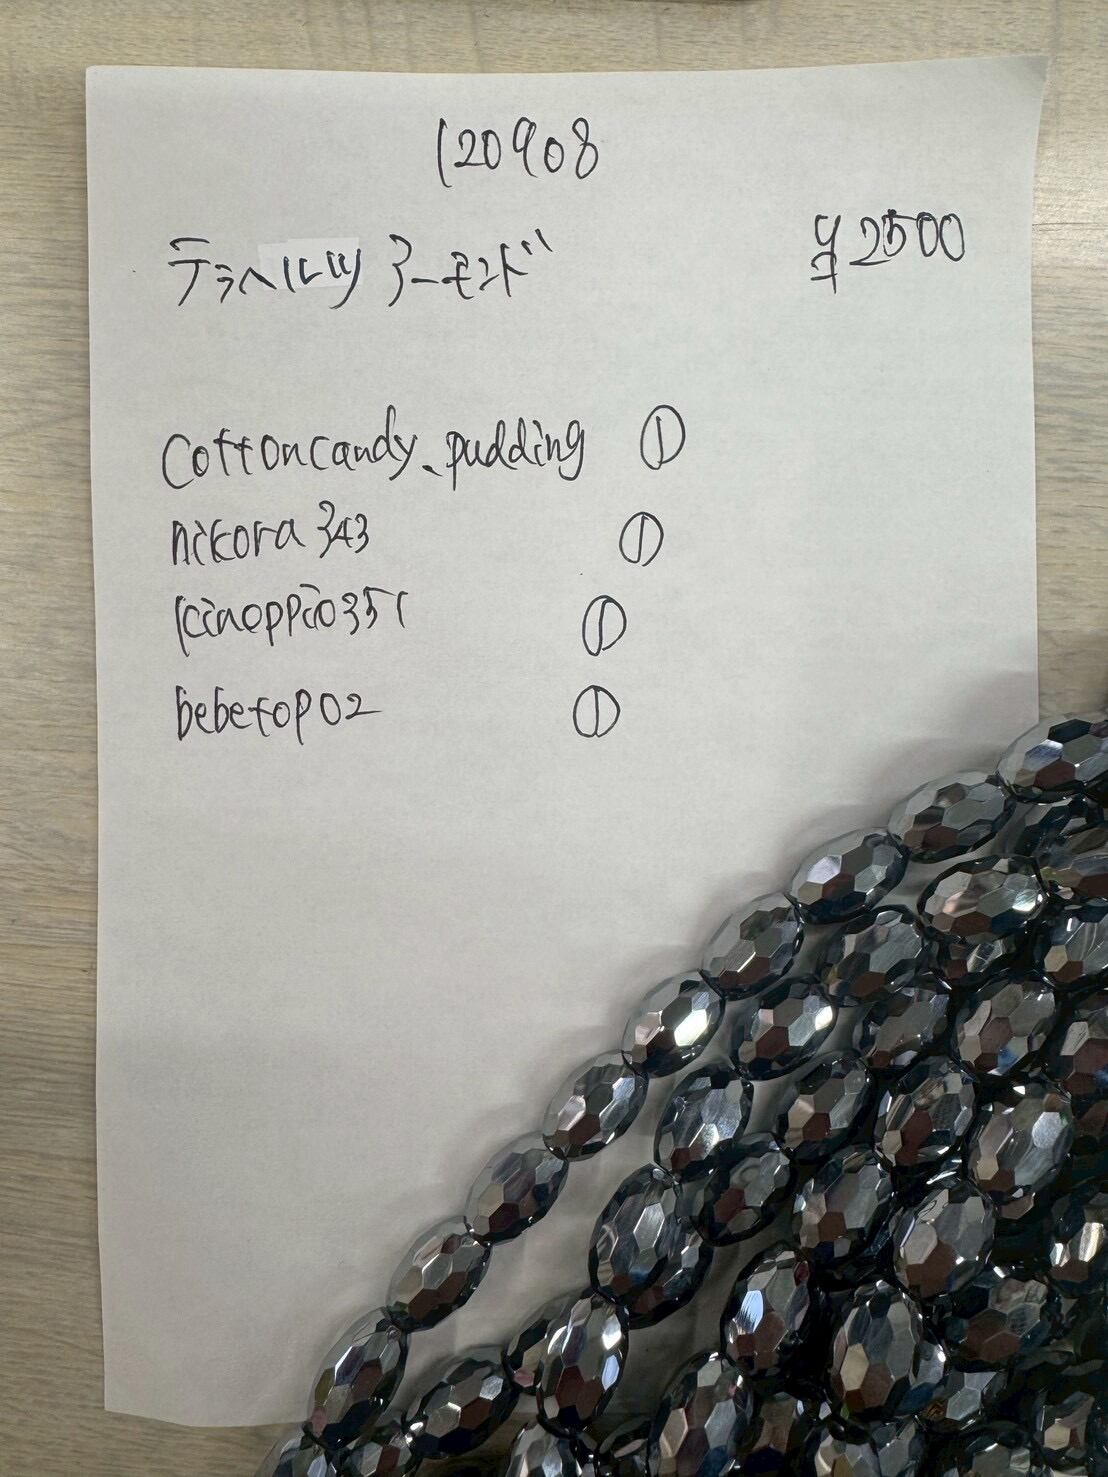 120908
テラヘルツ アーモンド ¥2500
cottoncandy_pudding ①
nikora343 ①
kinoppio351 ①
bebetop02 ①